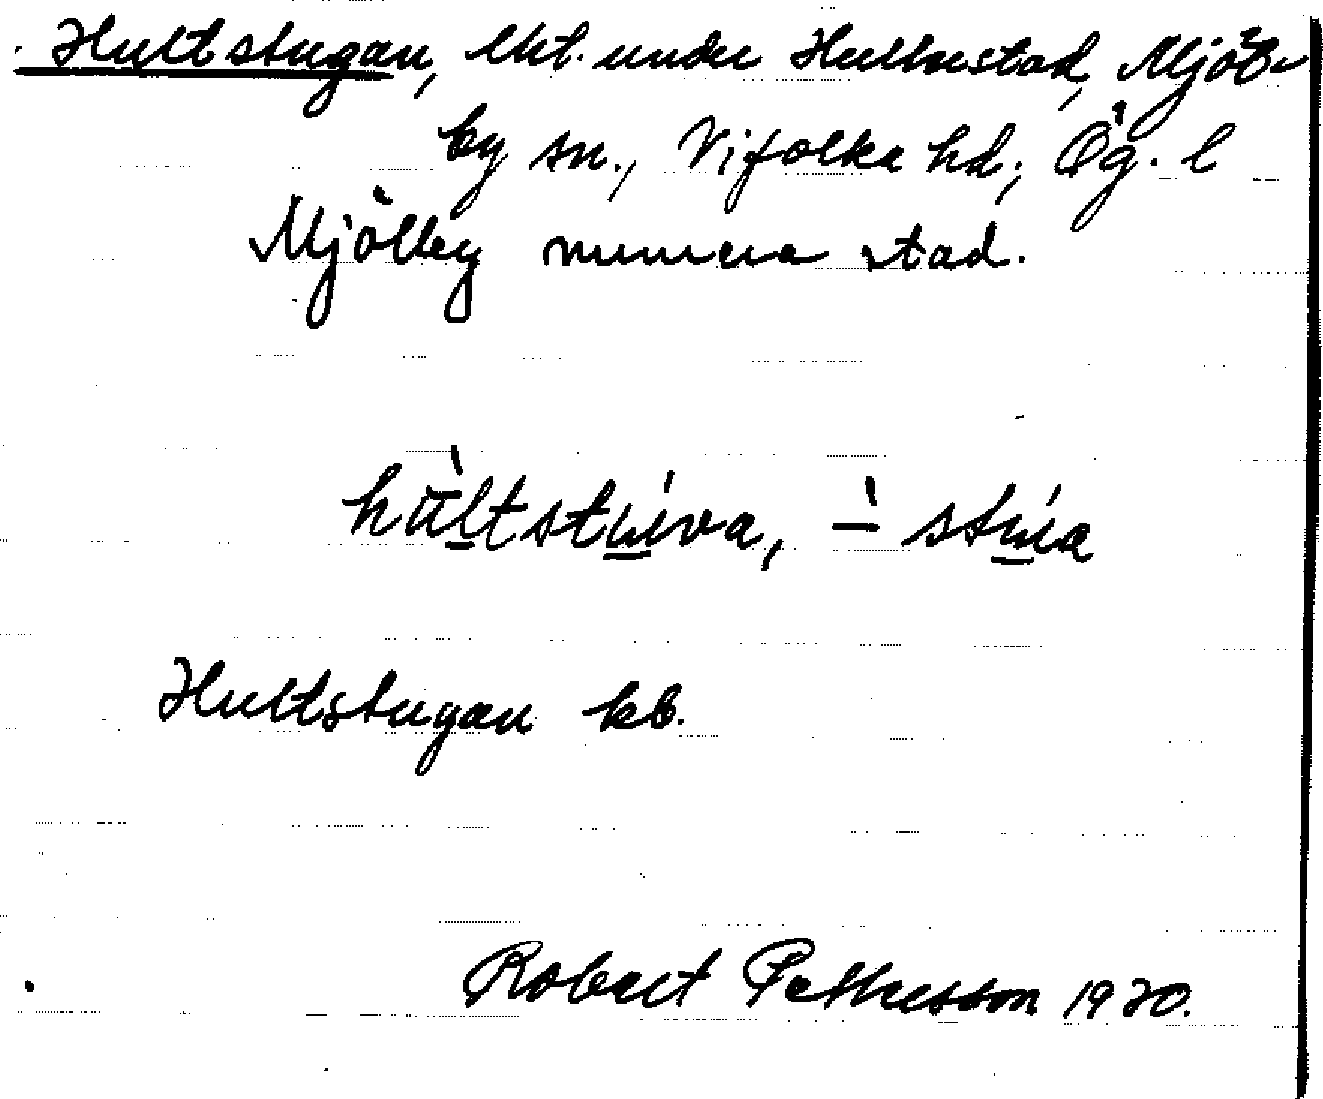 Hultstugan, lht. under Hulterstad, Mjöl-
by sn., Vifolka hd., Ög. l
Mjölby numera stad.
hùltstúva, ˋ- stúa
Hultstugan kb.
Robert Pettersson 1920.